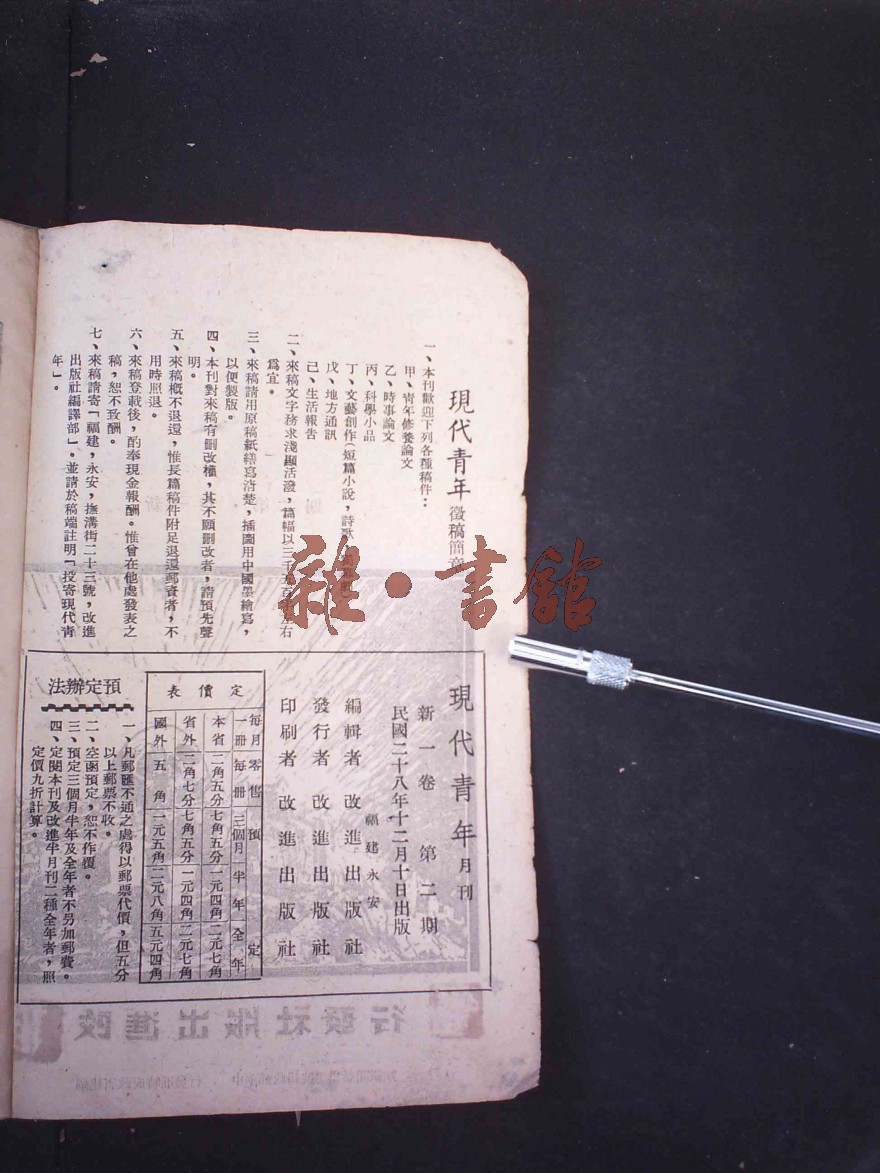 現代青年徵稿簡章
一、本刊歡迎下列各種稿件：
甲、青年修養論文
乙、時事論文
丙、科學小品
丁、文藝創作（短篇小說，詩歌
戊、地方通訊
己、生活報告
二、來稿文字務求淺顯活潑，篇幅以三千 左右
爲宜。
三、來稿請用原稿紙繕寫清楚，插圖用中國墨繪寫，
以便製版。
四、本刊對來稿有刪改權，其不願刪改者，請預先聲
明。
五、來稿概不退還，惟長篇稿件附足退還郵資者，不
用時照退。
六、來稿登載後，酌奉現金報酬。惟曾在他處發表之
稿，恕不致酬。
七、來稿請寄「福建，永安，撫溝街二十三號，改進
出版社編譯部」，並請於稿端註明「投寄現代青
年」。
現代青年月刊
新一卷 第二期
民國二十八年十二月十日出版
福建永安
編輯者 改進出版社
發行者 改進出版社
印刷者 改進出版社
定價表
每月一冊 零售每冊 預定 三個月 半年 全年
本省 二角五分 七角五分 一元四角 二元七角
省外 二角七分 七角五分 一元四角 二元七角
國外 五角 一元五角 二元八角 五元四角
預定辦法
一、凡郵匯不通之處得以郵票代價，但五分
以上郵票不收。
二、空函預定，恕不作覆。
三、預定三個月半年及全年者不另加郵費。
四、定閱本刊及改進半月刊二種全年者，照
定價九折計算。
改進出版社發行
雜·書館